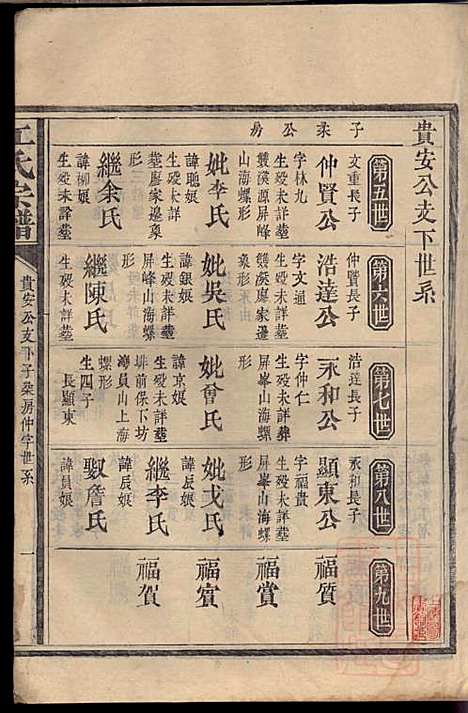 貴安公支下世系
子柔公房
第五世
文重長子
仲賢公
字林九
生殁未詳塟
雙溪源屏峰
山海螺形
妣李氏
諱聰娘
生殁未詳
塟廖家邊象
形
繼余氏
諱柳娘
生殁未詳塟
第六世
仲賢長子
浩達公
字文通
生殁未詳塟
雙溪廖家邊
形
妣吳氏
諱銀娘
生殁未詳塟
屏峰山海螺
形
繼陳氏
生殁未詳塟
第七世
浩達長子
永和公
字仲仁
生殁未詳葬
屏峯山海螺
形
妣曾氏
諱京娘
生殁未詳塟
排前保下坊
灣員山上海
螺形
生四子
長顯東
第八世
永和長子
顯東公
字福貴
生殁未詳塟
屏峯山海螺
形
妣戈氏
諱辰娘
繼李氏
諱辰娘
馭詹氏
諱員娘
第九世
福質
福賞
福賓
福賀
江氏宗譜
貴安公支下子柔房仲字世系
一